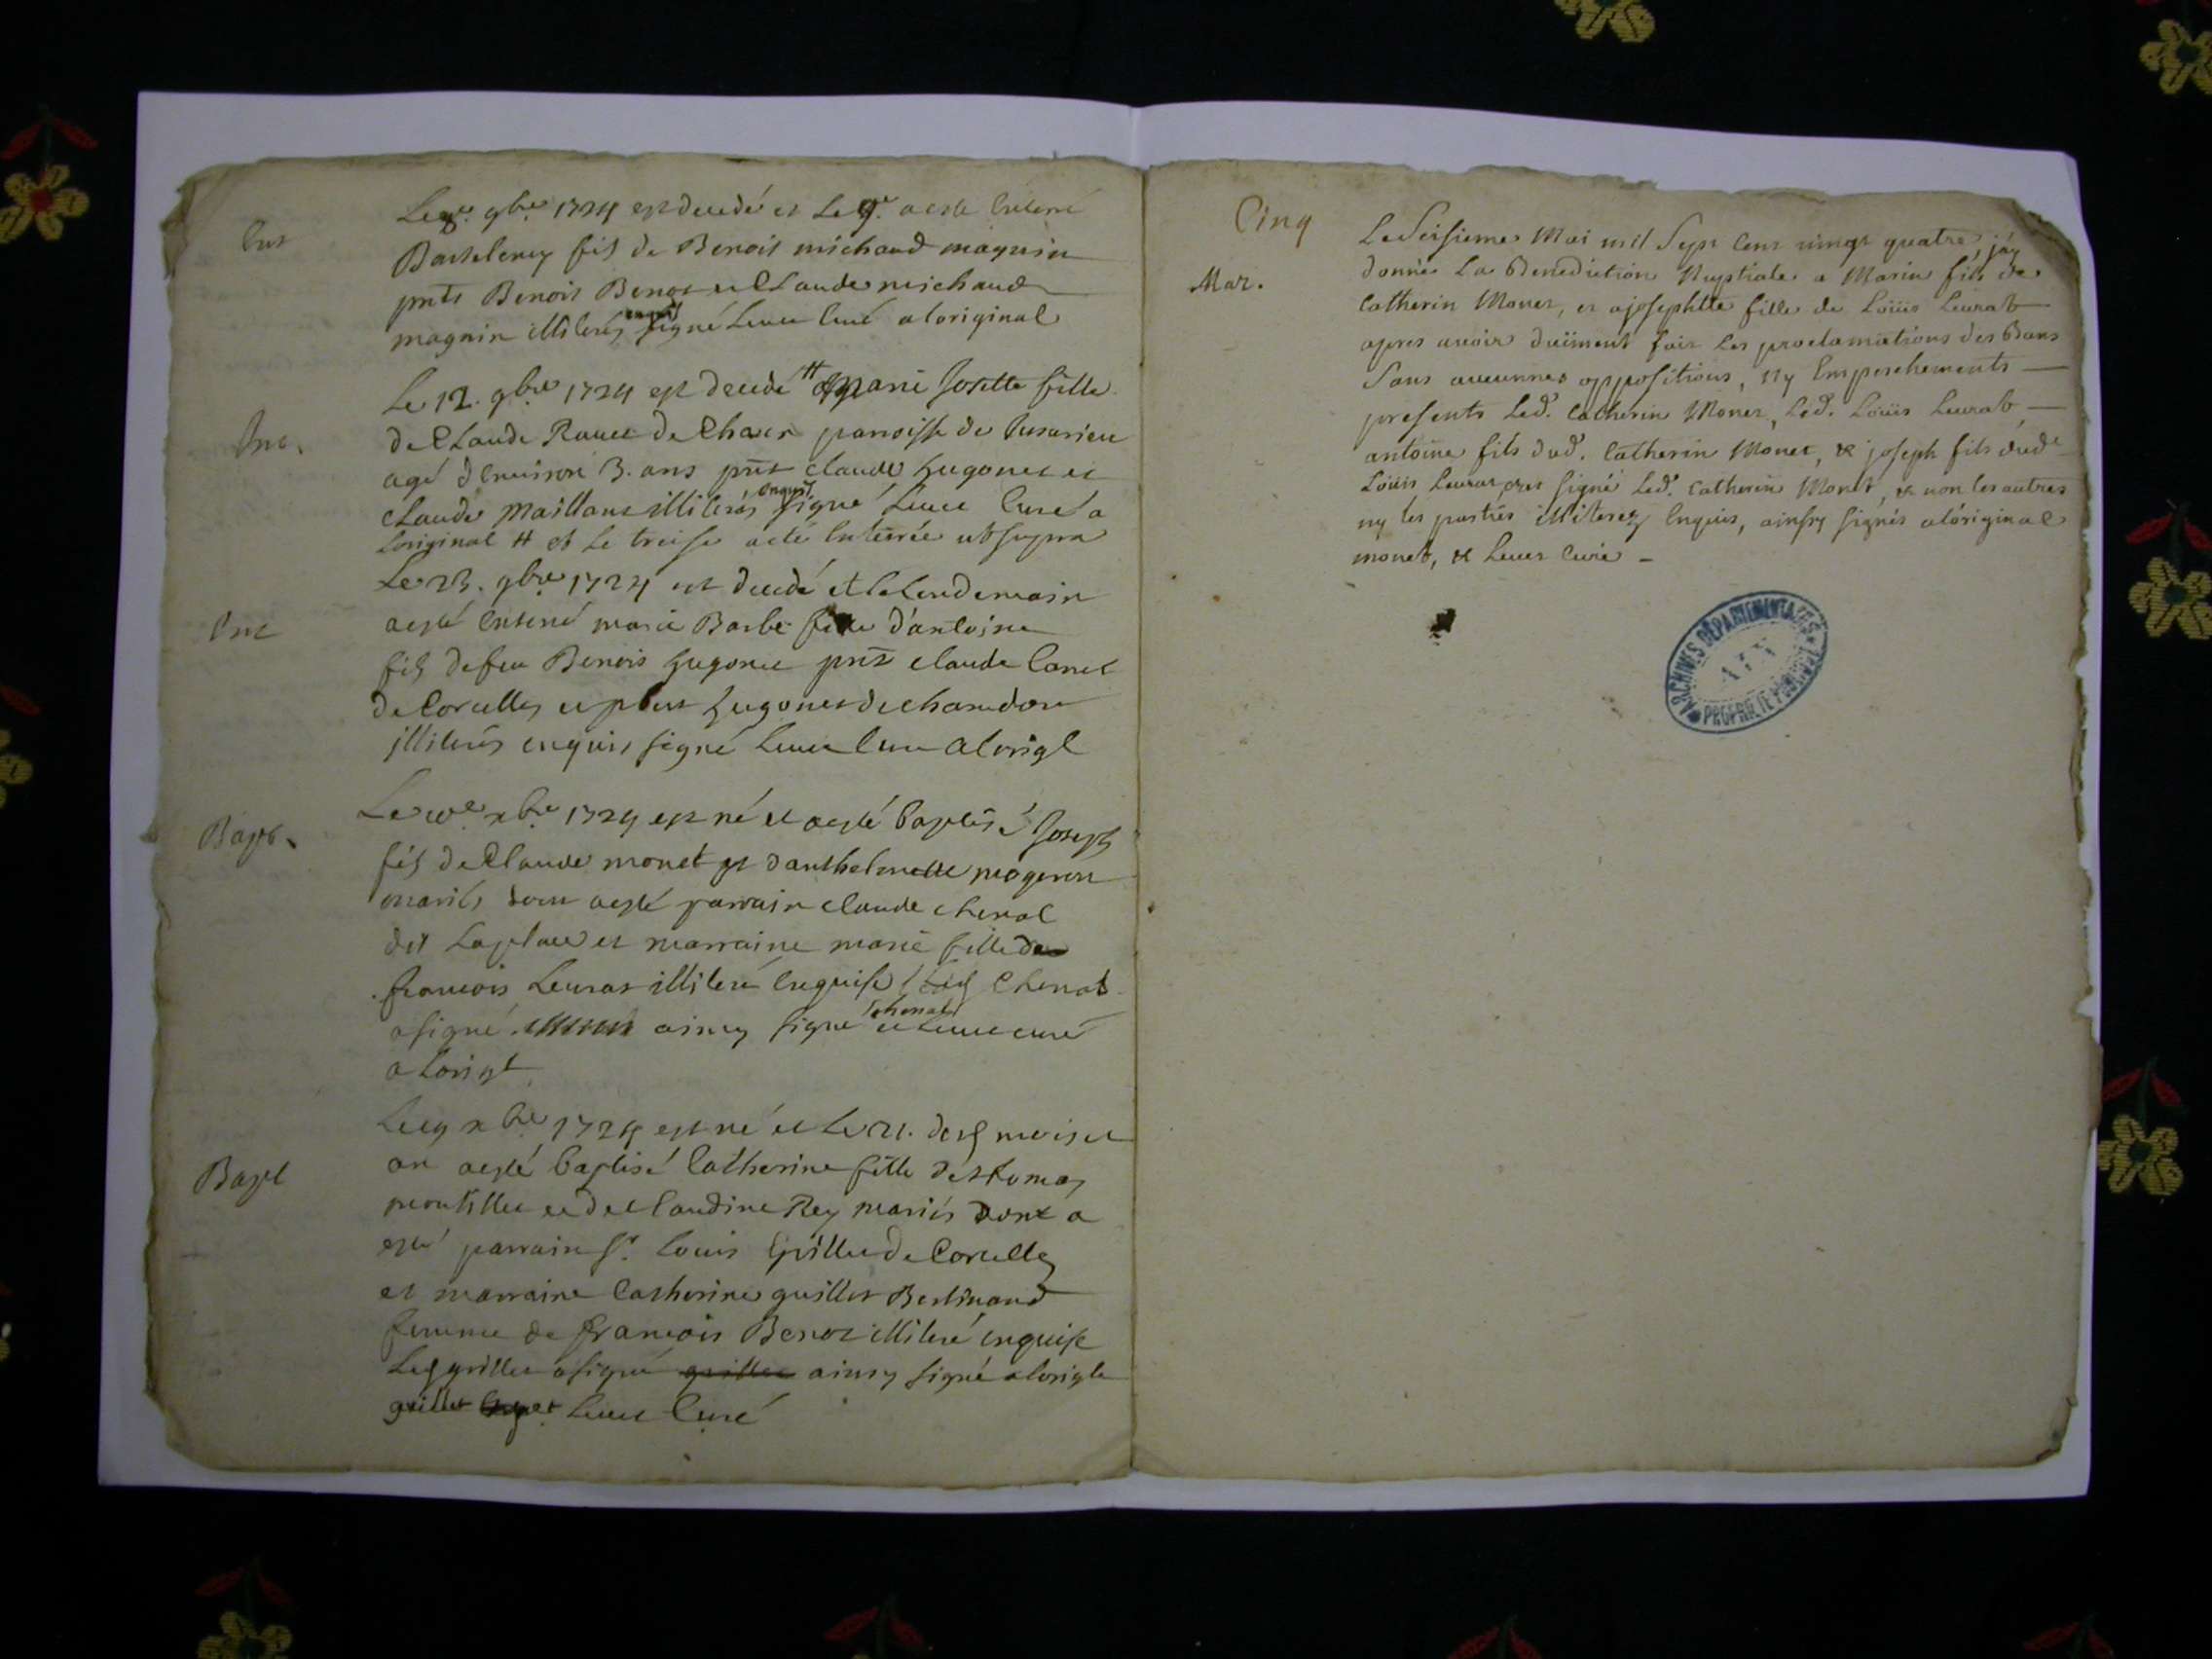 Ent
Le 8e. 9bre 1724 est decedé et Le 9e. a esté Enterré
Bartelemy fils de Benoit michaud magnin
pnts Benoit Benot et Claude michaud
magnin illiterés enquis signé Leuret Curé a loriginal
Le 12. 9bre 1724 est decedé # Marie Josette fille
de Claude Ravet de Charix paroisse de
Ent.
agé denviron 3. ans pnt claude hugonet et
claude Maillant illiterés Enquis signé Curé a
Loriginal # et Le treise a eté Enterrée ut supra
Le 23. 9bre 1724 est decedé et le Lendemain
Ent
a esté Enterré marie Barbe fille d'antoine
fils de feu Benoit hugonet pnt claude Canet
de Corcelles et hugonet de chamdore
illiterés enquis signé Curé a lorigl
Bapt.
xbre 1724 est né et a esté baptisé Joseph
fils de Claude monet et danthelmette mogeron
mariés dont a esté parrain claude chenal
dit Laplace et marraine marie fille de
francois Leurat illiteré Enquise Led Chenal
a signé ainsy signé chenal et curé
a Lorigl
xbre 1724 est né et Le 21. desd mois et
Bapt
an a esté baptisé Catherine fille de
et de Claudine Rey mariés dont a
esté parrain Sr. Louis Grillet de Corcelles
et marraine Catherine guillot Bertinand
femme de francois Benot illiteré enquise
Led grillet a signé grillet ainsy signé a lorigle
grillet et Curé
Cinq
Mar.
Le Seisieme Mai mil Sept Cent vingt quatre, j'ay
donné La Benediction Nuptiale a Marin fils de
Catherin Monet, et a josephtte fille de Loüis Leurat
apres avoir duëment fait Les proclamations des Bans
Sans aucunnes oppositions, ny Empeschements
presents Led. Catherin Monet, Led. Loüis Leurat
antoine fils dud. Catherin Monet, & joseph fils dud
Loüis Leurat, ont signé Led. Catherin Monet, & non les autres
ny les parties illiterez Enquis, ainsy signés a l'original
monet, & Curé
ARCHIVES DÉPARTEMENTALES
AIN
PROPRIÉTÉ PUBLIQUE